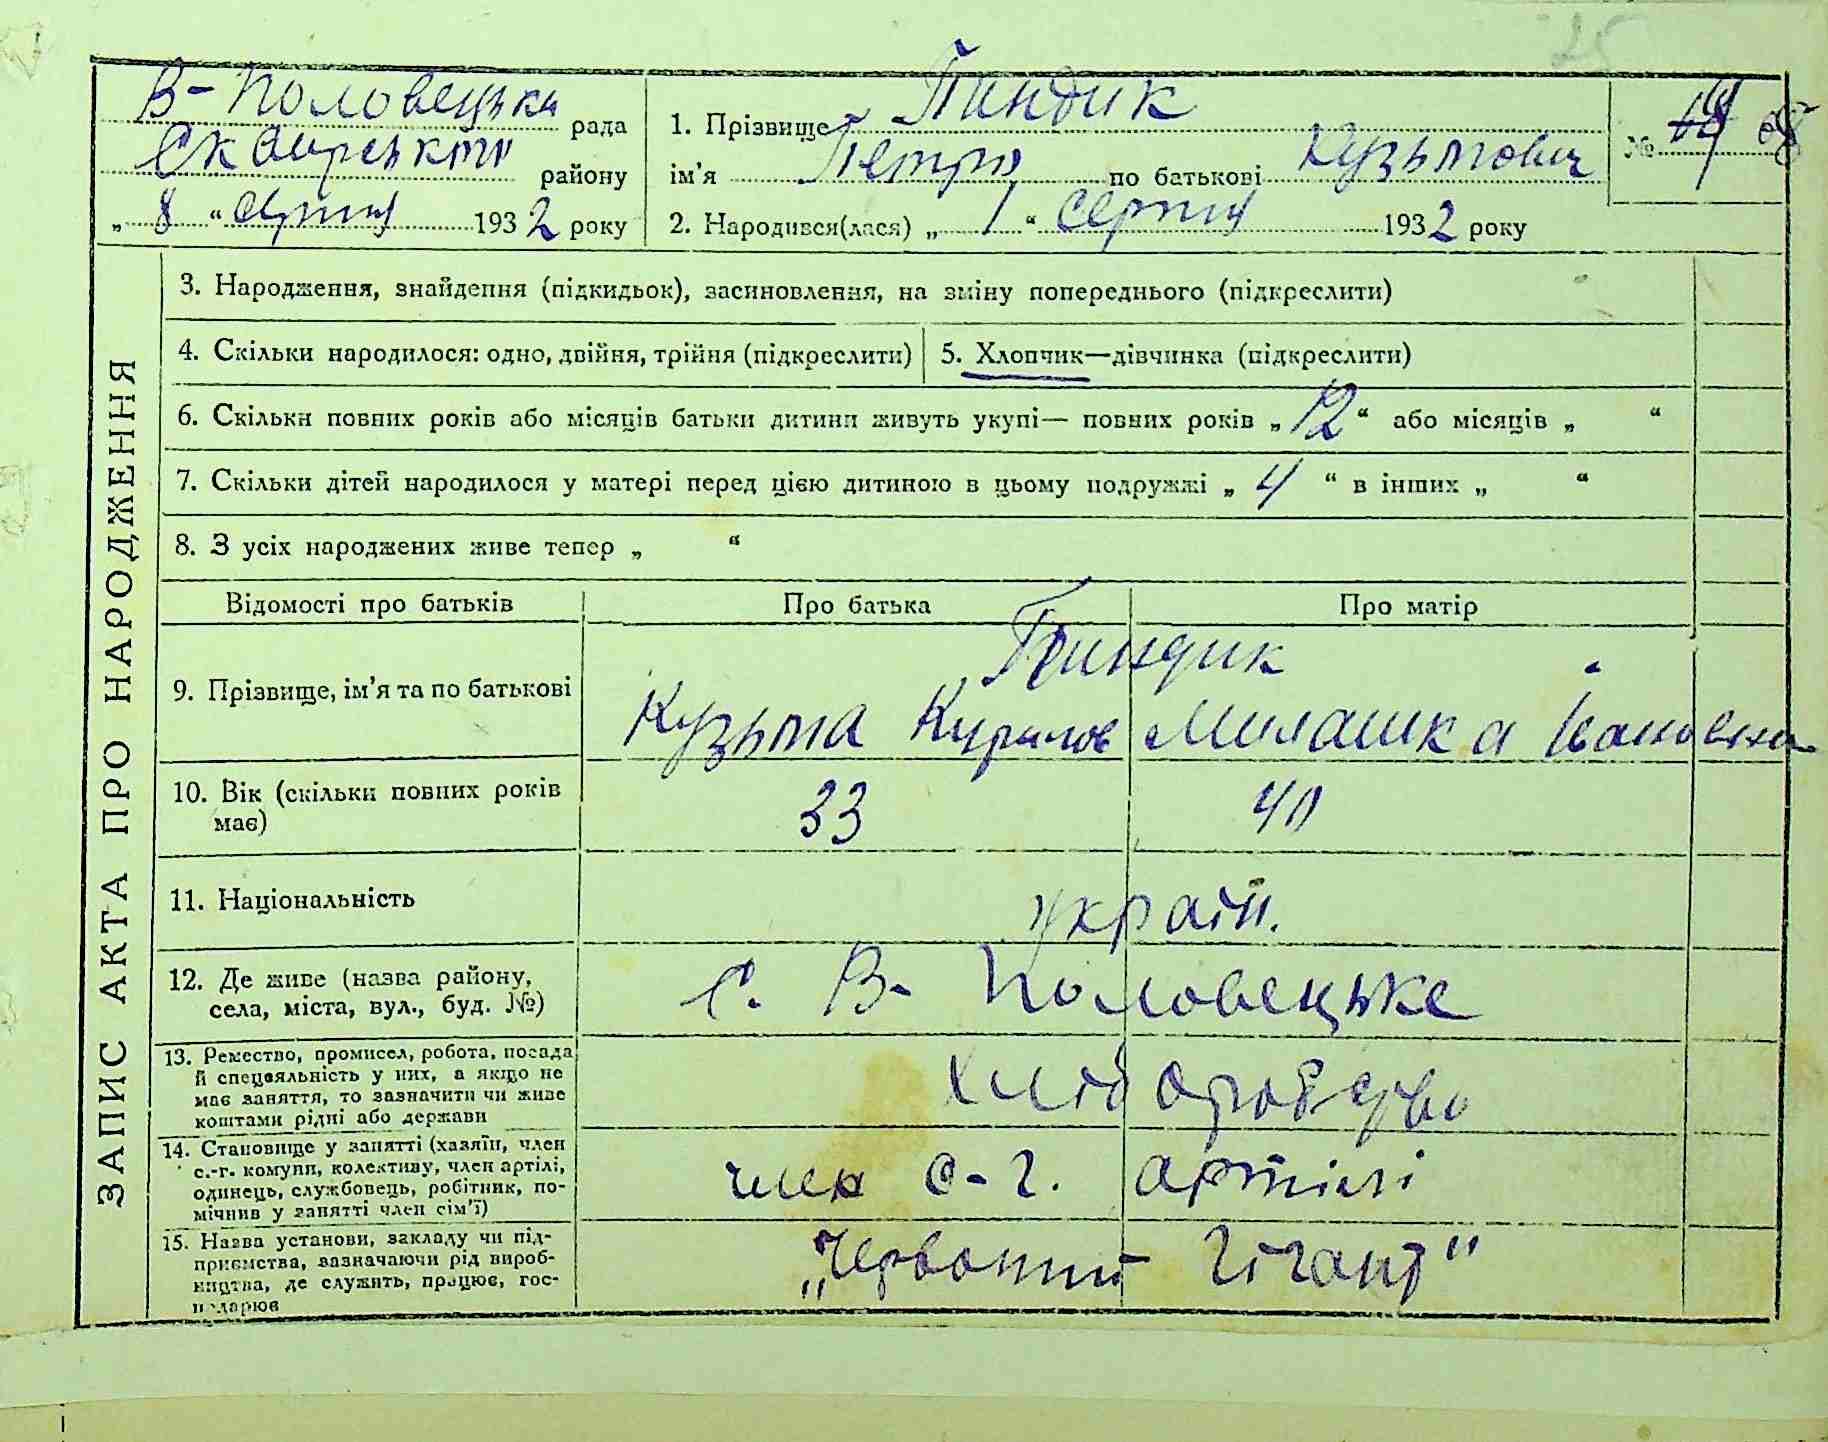 25
В-Половецька рада
Сквирського району
„ 8 “ серпня 1932 року
1. Прізвище Пиндик
ім’я Петро по батькові Кузьмович
2. Народився(лася) „ 1 “ серпня 1932 року
№ 68
ЗАПИС АКТА ПРО НАРОДЖЕННЯ
3. Народження, знайдення (підкидьок), засиновлення, на зміну попереднього (підкреслити)
4. Скільки народилося: одно, двійня, трійня (підкреслити)
5. Хлопчик—дівчинка (підкреслити)
6. Скільки повних років або місяців батьки дитини живуть укупі— повних років „ 12 “ або місяців „ “
7. Скільки дітей народилося у матері перед цією дитиною в цьому подружжі „ 4 “ в інших „ “
8. З усіх народжених живе тепер „ “
Відомості про батьків Про батька Про матір
9. Прізвище, ім’я та по батькові
Пиндик
Кузьма Курилов Милашка Івановна
10. Вік (скільки повних років
має)
33 40
11. Національність
україн.
12. Де живе (назва району,
села, міста, вул., буд. №)
с. В- Половецьке
13. Ремество, промисел, робота, посада
й спецвяльність у них, а якщо не
має заняття, то зазначити чи живе
коштами рідні або держави
Хліборобство
14. Становище у занятті (хазяїн, член
с.-г. комуни, колективу, член артілі,
одинець, службовець, робітник, по-
мічнив у занятті член сім’ї)
член с-г. артілі
15. Назва установи, закладу чи під-
приємства, зазначаючи рід вироб-
ництва, де служить, працює, гос-
подарює
„Червоний Гігант"